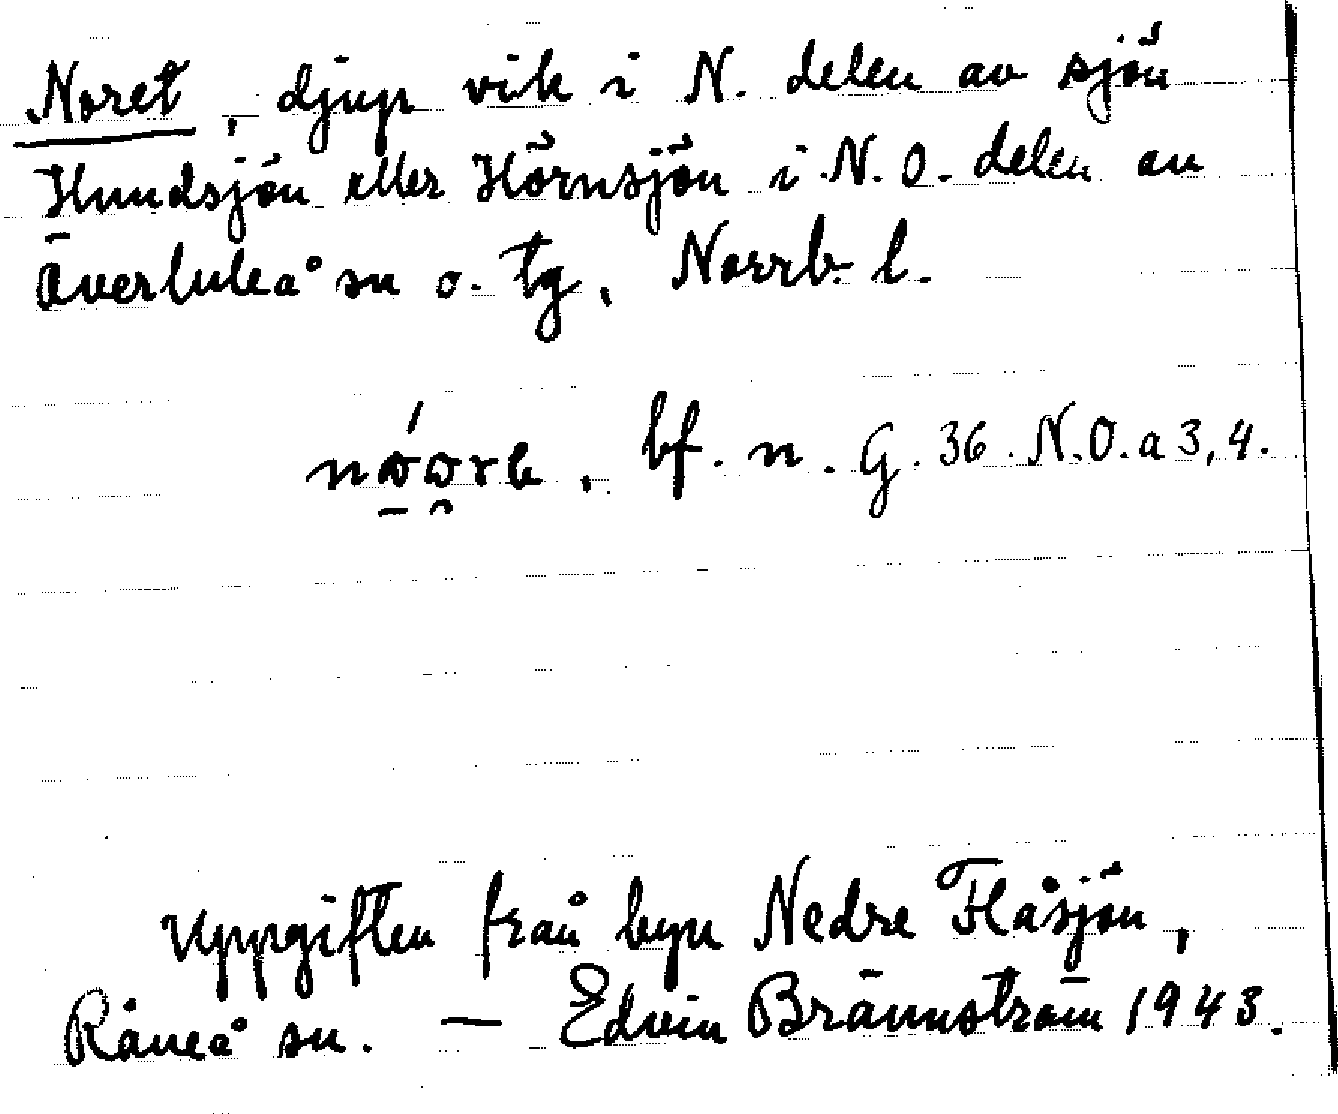 Noret, djup vik i N. delen av sjön
Hundsjön eller Hörnsjön i N.O. delen av
Överluleå sn o. tg, Norrb. l.
bf. n. G. 36. N.O. a 3, 4.
Uppgiften från byn Nedre Flåsjön,
Råneå sn. — Edvin Brännström 1943.